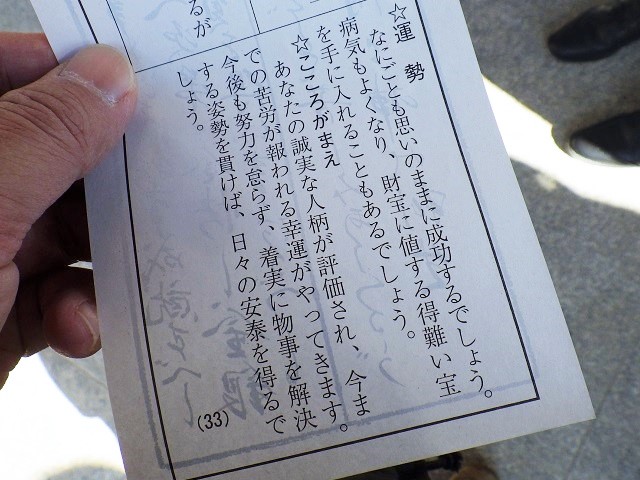 ☆運　勢
なにごとも思いのままに成功するでしょう。
病気もよくなり、財宝に値する得難い宝
を手に入れることもあるでしょう。
☆こころがまえ
あなたの誠実な人柄が評価され、今ま
での苦労が報われる幸運がやってきます。
今後も努力を怠らず、着実に物事を解決
する姿勢を貫けば、日々の安泰を得るで
しょう。
(33)
るが